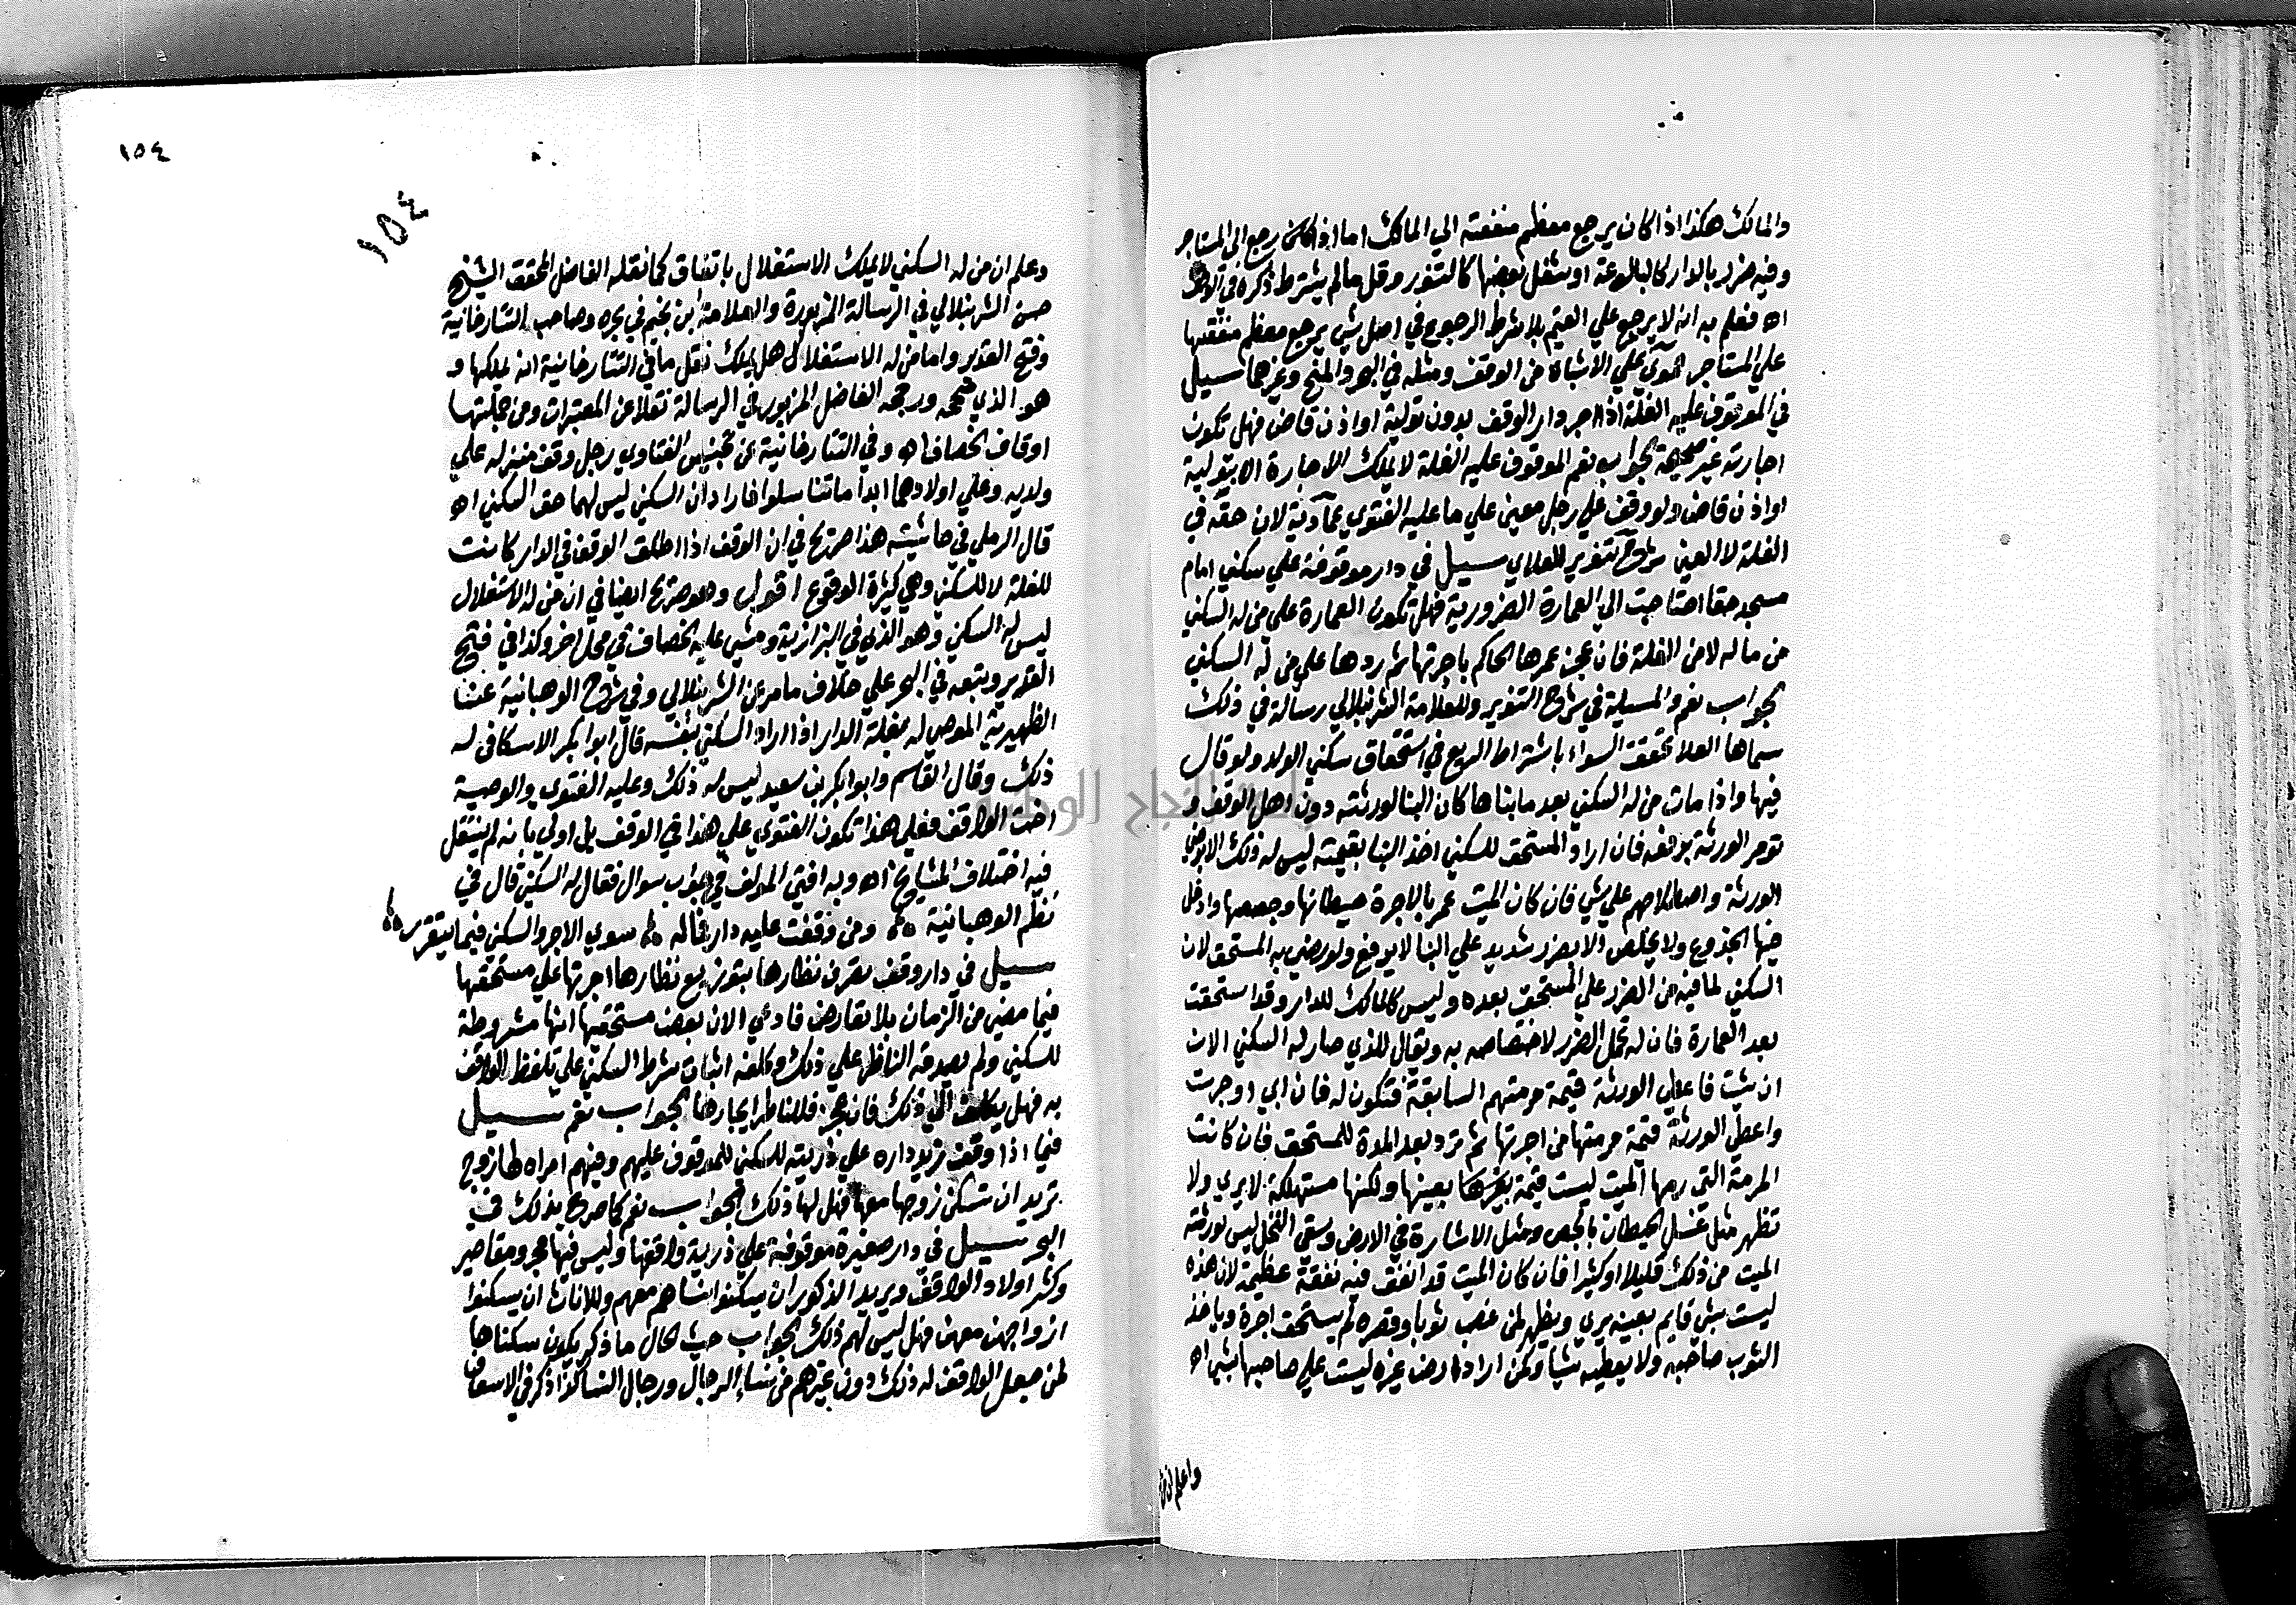 والمالك هكذا اذا كان يرجع معظم منفعته الي المالك اما اذا كان يرجع الى المستاجر
وفيه ضرر بالدار كالبالوعة او شغل بعضها كالتنور وقل مالم يشترط ذكره في
اه فعلم به انه لا يرجع علي القيم بلا شرط الرجوع في اصل شي يرجع معظم منفعتها
علي المستاجر حموي علي الاشباه من الوقف ومثله في البحر والمنح وغيرها سيل
في الموقوف عليه الغلة اذا اجر دار الوقف بدون تولية او اذن قاض فهل تكون
اجارته غير صحيحة الجواب نعم الموقوف عليه الغلة لا يملك الاجارة الا بتولية
او اذن قاض ولو وقف علي رجل معين علي ما عليه الفتوي عمادية لان حقه في
الغلة لا العين شرح تنوير للعلاي سيل في دار موقوفة علي سكني امام
مسجد حقا احتاجت الي العمارة الضرورية فهل تكون العمارة علي من له السكني
من ماله لا من الغلة فان عجز عمرها الحاكم باجرتها ثم ردها علي من له السكني
الجواب نعم والمسيلة في شرح التنوير وللعلامة الشرنبلالي رسالة في ذلك
سماها تحقيق السواد باشتراط الريع في استحقاق سكني الولد ولو قال
فيها واذا مات من له السكني بعد ما بناها كان البنا لورثته دون اهل الوقف و
تومر الورثة برفعه فان اراد المستحق للسكني اخذ البنا بقيمته ليس له ذلك الا برضي
الورثة واصطلاحهم علي شي فان كان الميت عمر بالاجرة حيطانها وجصصها وادخل
فيها الجذوع ولا يخلص الا بضرر شديد علي البنا لا يرفع ولو رضي به المستحق لان
السكني لما فيه من الضرر علي المستحق بعده وليس كالمالك للدار وقد استحقت
بعد العمارة فان له تحمل الضرر لاختصاصه به ويقال للذي صار له السكني الان
ان شيت فاعطي الورثة قيمة مرمتهم السابقة فتكون له فان ابي اوجرت
واعطي الورثة قيمة مرمتها من اجرتها ثم ترد بعد المدة للمستحق فان كانت
المرمة التي رمها الميت ليست قيمة بعينها ولكنها مستهلكة لا يري ولا
تظهر مثل غسل الحيطان بالجص ومثل الاشارة في الارض وسقي النخل ليس لورثة
الميت من ذلك قليلا او كثيرا فان كان الميت قد انفق فيه نفقة عظيمة لان هذه
ليست بشي قايم بعينه يري ويظهر لمن غصب ثوبا وقصره لم يستحق اجرة وياخذ
الثوب صاحبه ولا يعطيه شيا وكمن ارض غيره ليست علي صاحبها بشي اه
واعلم ان من
١٥٤
١٥٤
وعلم ان من له السكني لا يملك الاستغلال باتفاق كما نقله الفاضل المحقق الشيخ
حسن الشرنبلالي في الرسالة المزبورة والعلامة ابن نجيم في بحره وصاحب التتارخانية
وفتح القدير واما من له الاستغلال هل يملك نقل ما في التتارخانية انه يملكها و
هو الذي صححه ورجحه الفاضل المزبور في الرسالة نقلا من المعتبرات ومن جملتها
اوقاف الخصاف اه وفي التتارخانية عن تجنيس الفتاوي رجل وقف منزله علي
ولديه وعلي اولادهما ابدا ما تناسلوا فارادان السكني ليس لهما حق السكني اه
قال الرملي في حاشيته هذا صريح في ان الوقف اذا اطلق الوقف في الدار كانت
للغلة لا للسكني وهي كثيرة الوقوع اقول وهو صريح ايضا في ان من له الاستغلال
ليس له السكني وهو الذي في البزازية ومشي عليه الخصاف في محل اخر وكذا في فتح
القدير وتبعه في البحر علي خلاف ما مر عن الشرنبلالي وفي شرح الوهبانية عن
الظهيرية الموصي له بغلة الدار اذا اراد السكني بنفسه قال ابوا بكر الاسكافي له
ذلك وقال القاسم وابوا بكر بن سعيد ليس له ذلك وعليه الفتوي والوصية
اخت الوقف فعلي هذا تكون الفتوي علي هذا في الوقف بل اولي بانه لم ينتقل
فيه اختلاف المشايخ اه وبه افتي المولف في جواب سوال فقال له السكني قال في
نظم الوهبانية ومن وقفت عليه دار فما له سوي الاجر والسكني فيما يتقرر
سيل في دار وقف تعرف نظارها بتوزيع نظارها اجرتها علي مستحقها
فيما مضي من الزمان بلا تعارض فادعي الان بعض مستحقيها انها مشروطة
للسكني ولم يصدقه الناظر علي ذلك وكلفه اثبات شرط السكني علي تلفظ الواقف
به فهل يكلف الي ذلك فان عجز فللناظر ايجارها الجواب نعم سيل
فيما اذا وقف زيد داره علي ذريته للسكني للموقوف عليهم وفيهم امراه لها زوج
تريد ان تسكن زوجها معها فهل لها ذلك الجواب نعم كما صرح بذلك في
البحر سيل في دار صغيرة موقوفة علي ذرية واقفها وليس فيها حجر ومقاصير
وكثر اولاد الواقف ويريد الذكور ان يسكنوا نساهم معهم وللاناث ان يسكنوا
ازواجهن معهن فهل ليس لهم ذلك الجواب حيث الحال ما ذكر يكون سكناها
لمن جعل الواقف له ذلك دون غيرهم من نساء الرجال ورجال النسا كذا ذكر في الاسعاف